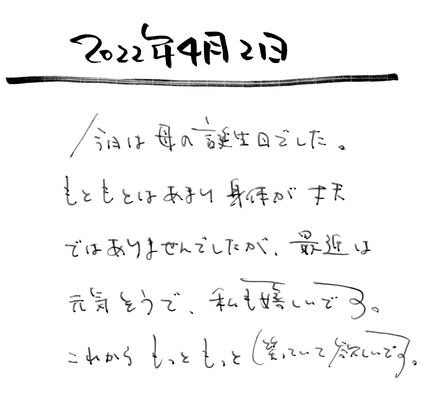 2022年4月2日
今日は母の誕生日でした。
もともとはあまり身体が丈夫
ではありませんでしたが、最近は
元気そうで、私も嬉しいです。
これからもっともっと笑っていて欲しいです。